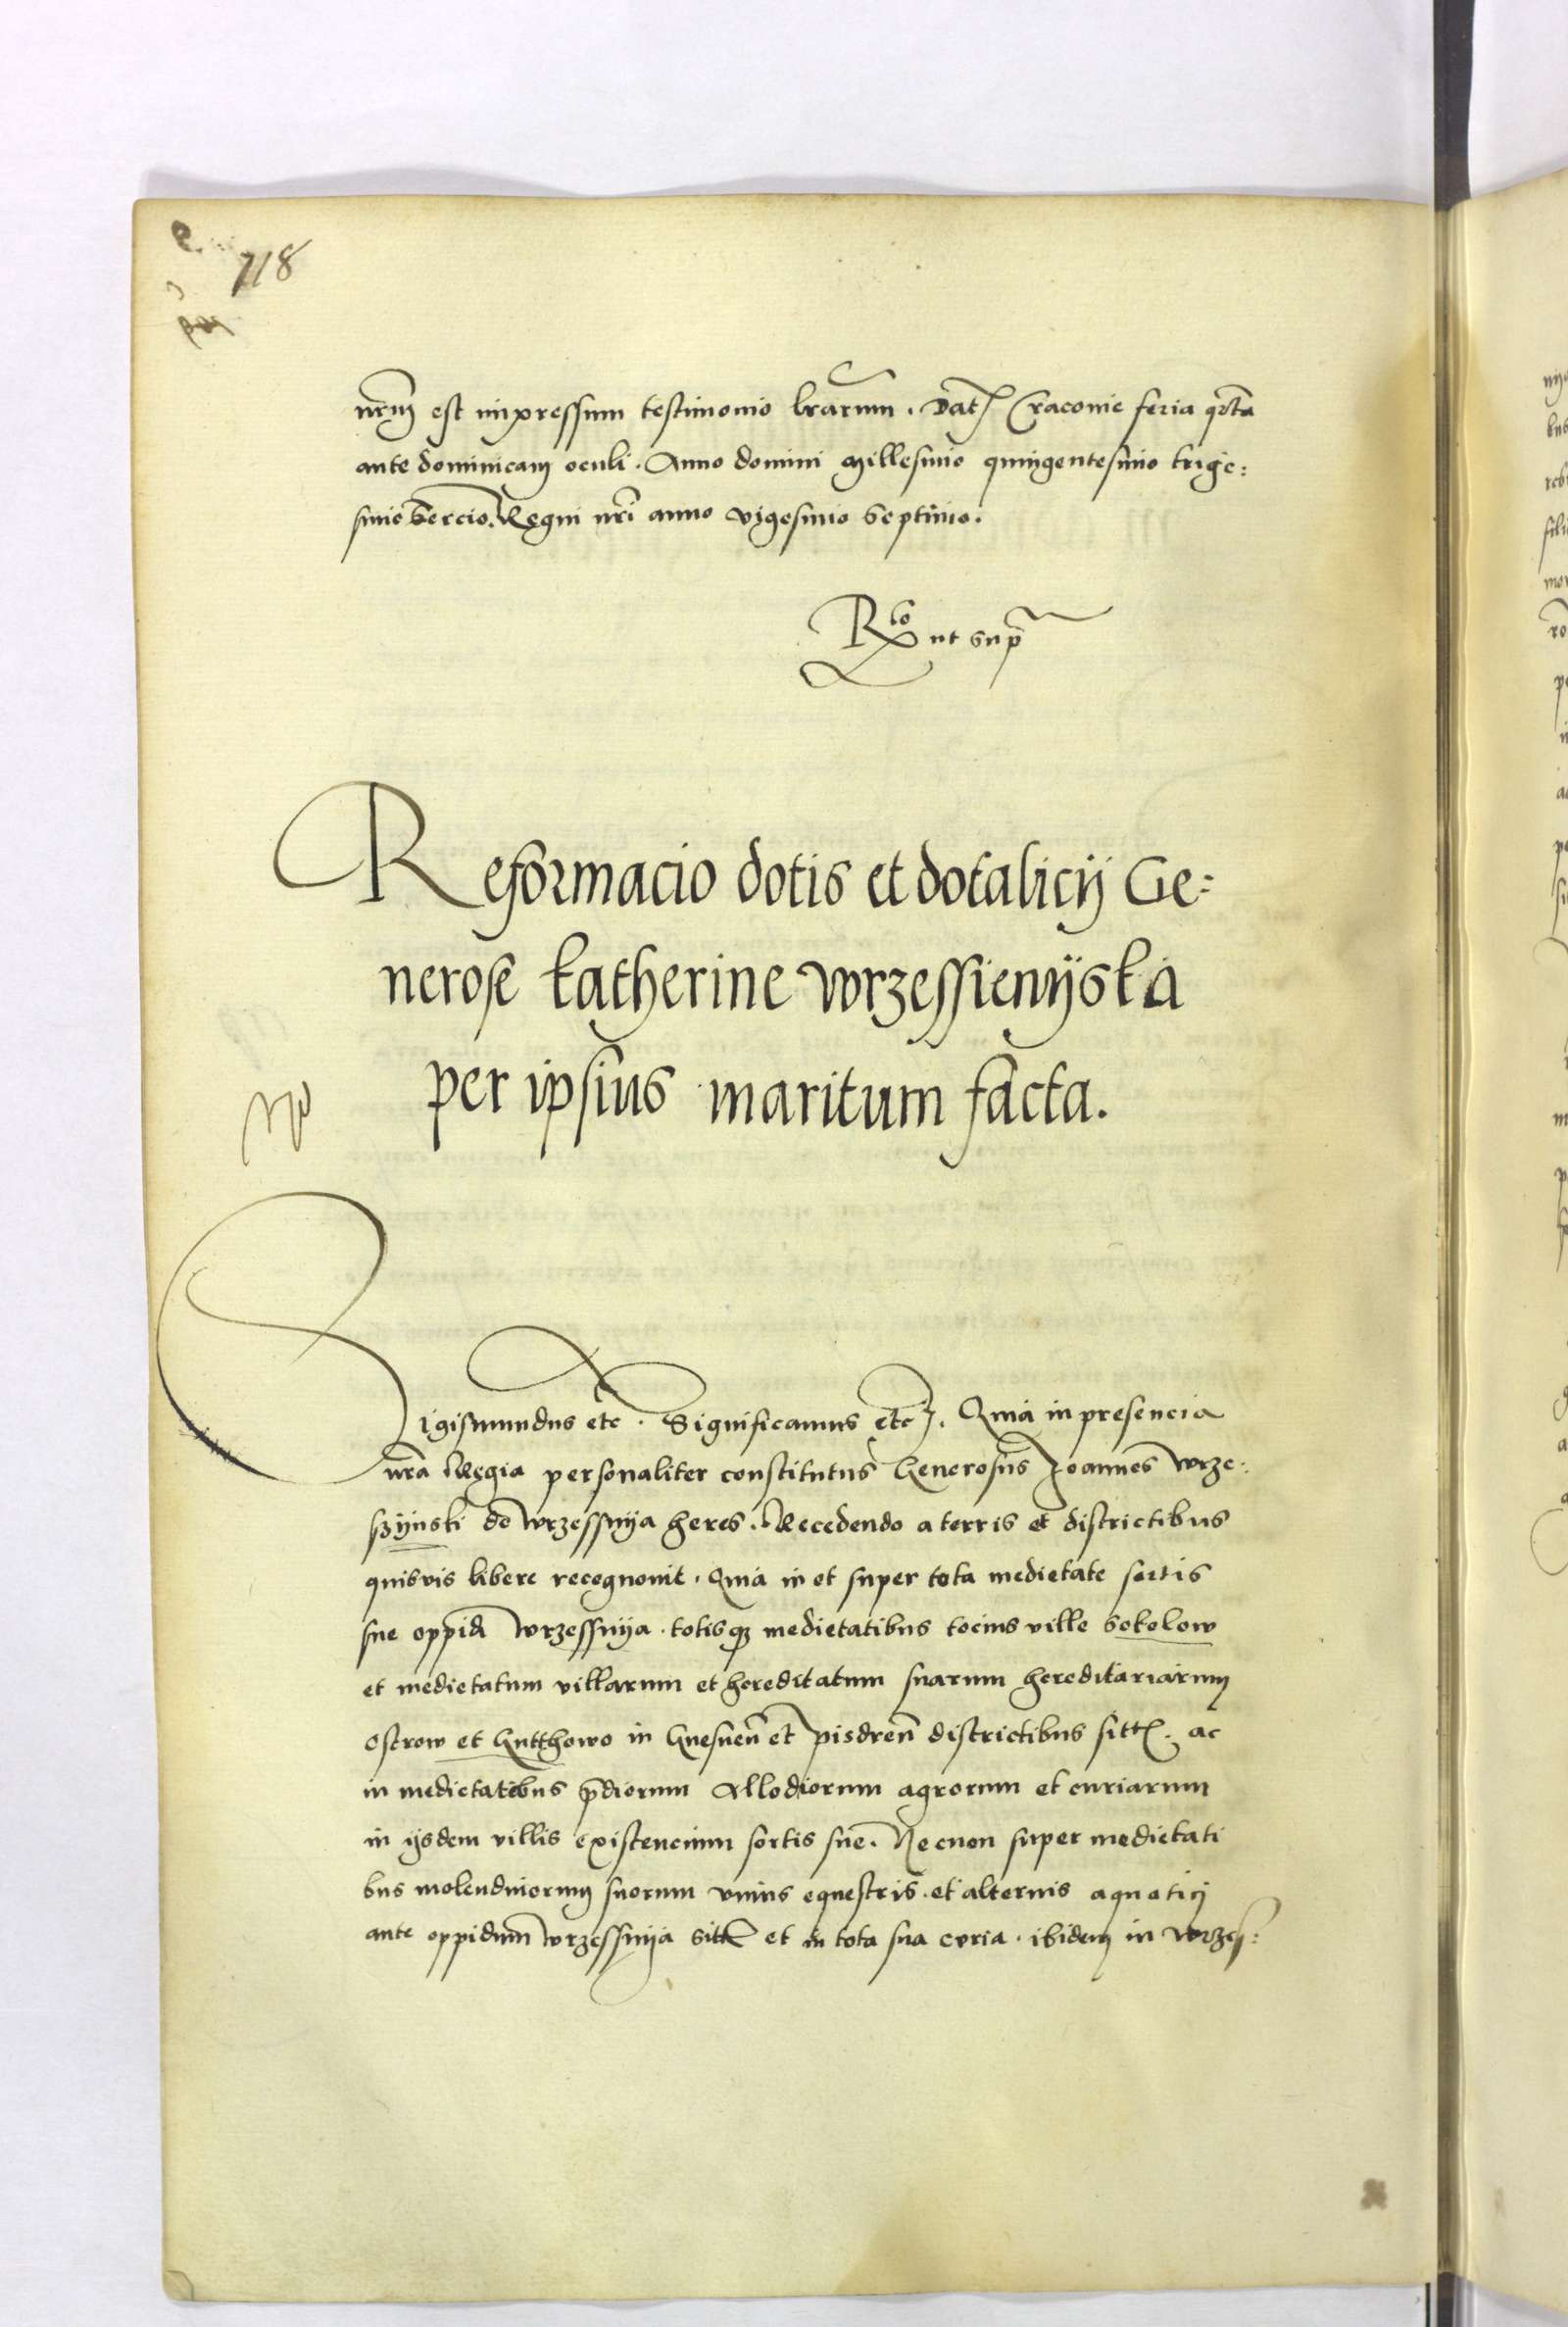 718
nrm est impressum testimonio lrarum. Dat Cracovie feria qrta
ante dominicam oculi. Anno domini millesimo quingentesimo trige:
simo tercio. Regni nri anno vigesimo septimo.
Rlo ut supra
Reformacio dotis et dotalicij Ge:
nerose Katherine Wrzessienyska
per ipsius maritum facta.
Sigismundus etc. Significamus etc. Quia in presencia
nra Regia personaliter constitutus Generosus Joannes Wrze:
sszynski de Wrzessnya heres. Recedendo a terris et districtibus
quisvis libere recognovit. Quia in et super tota medietate sortis
sue oppidi Wrzessnya. totisq; medietatibus tocius ville Sokolow
et medietatum villarum et hereditatum suarum hereditariarum
Ostrow et Gutthowo in Gnesnen et Pisdren districtibus sitt. ac
in medietatibus prediorum Allodiorum agrorum et curiarum
in ijsdem villis existencium sortis sue. Necnon super medietati
bus molendinorum suorum unius equestris. et alterius aquatici
ante oppidum Wrzessnya sitt et in tota sua curia. ibidem in Wrzes: